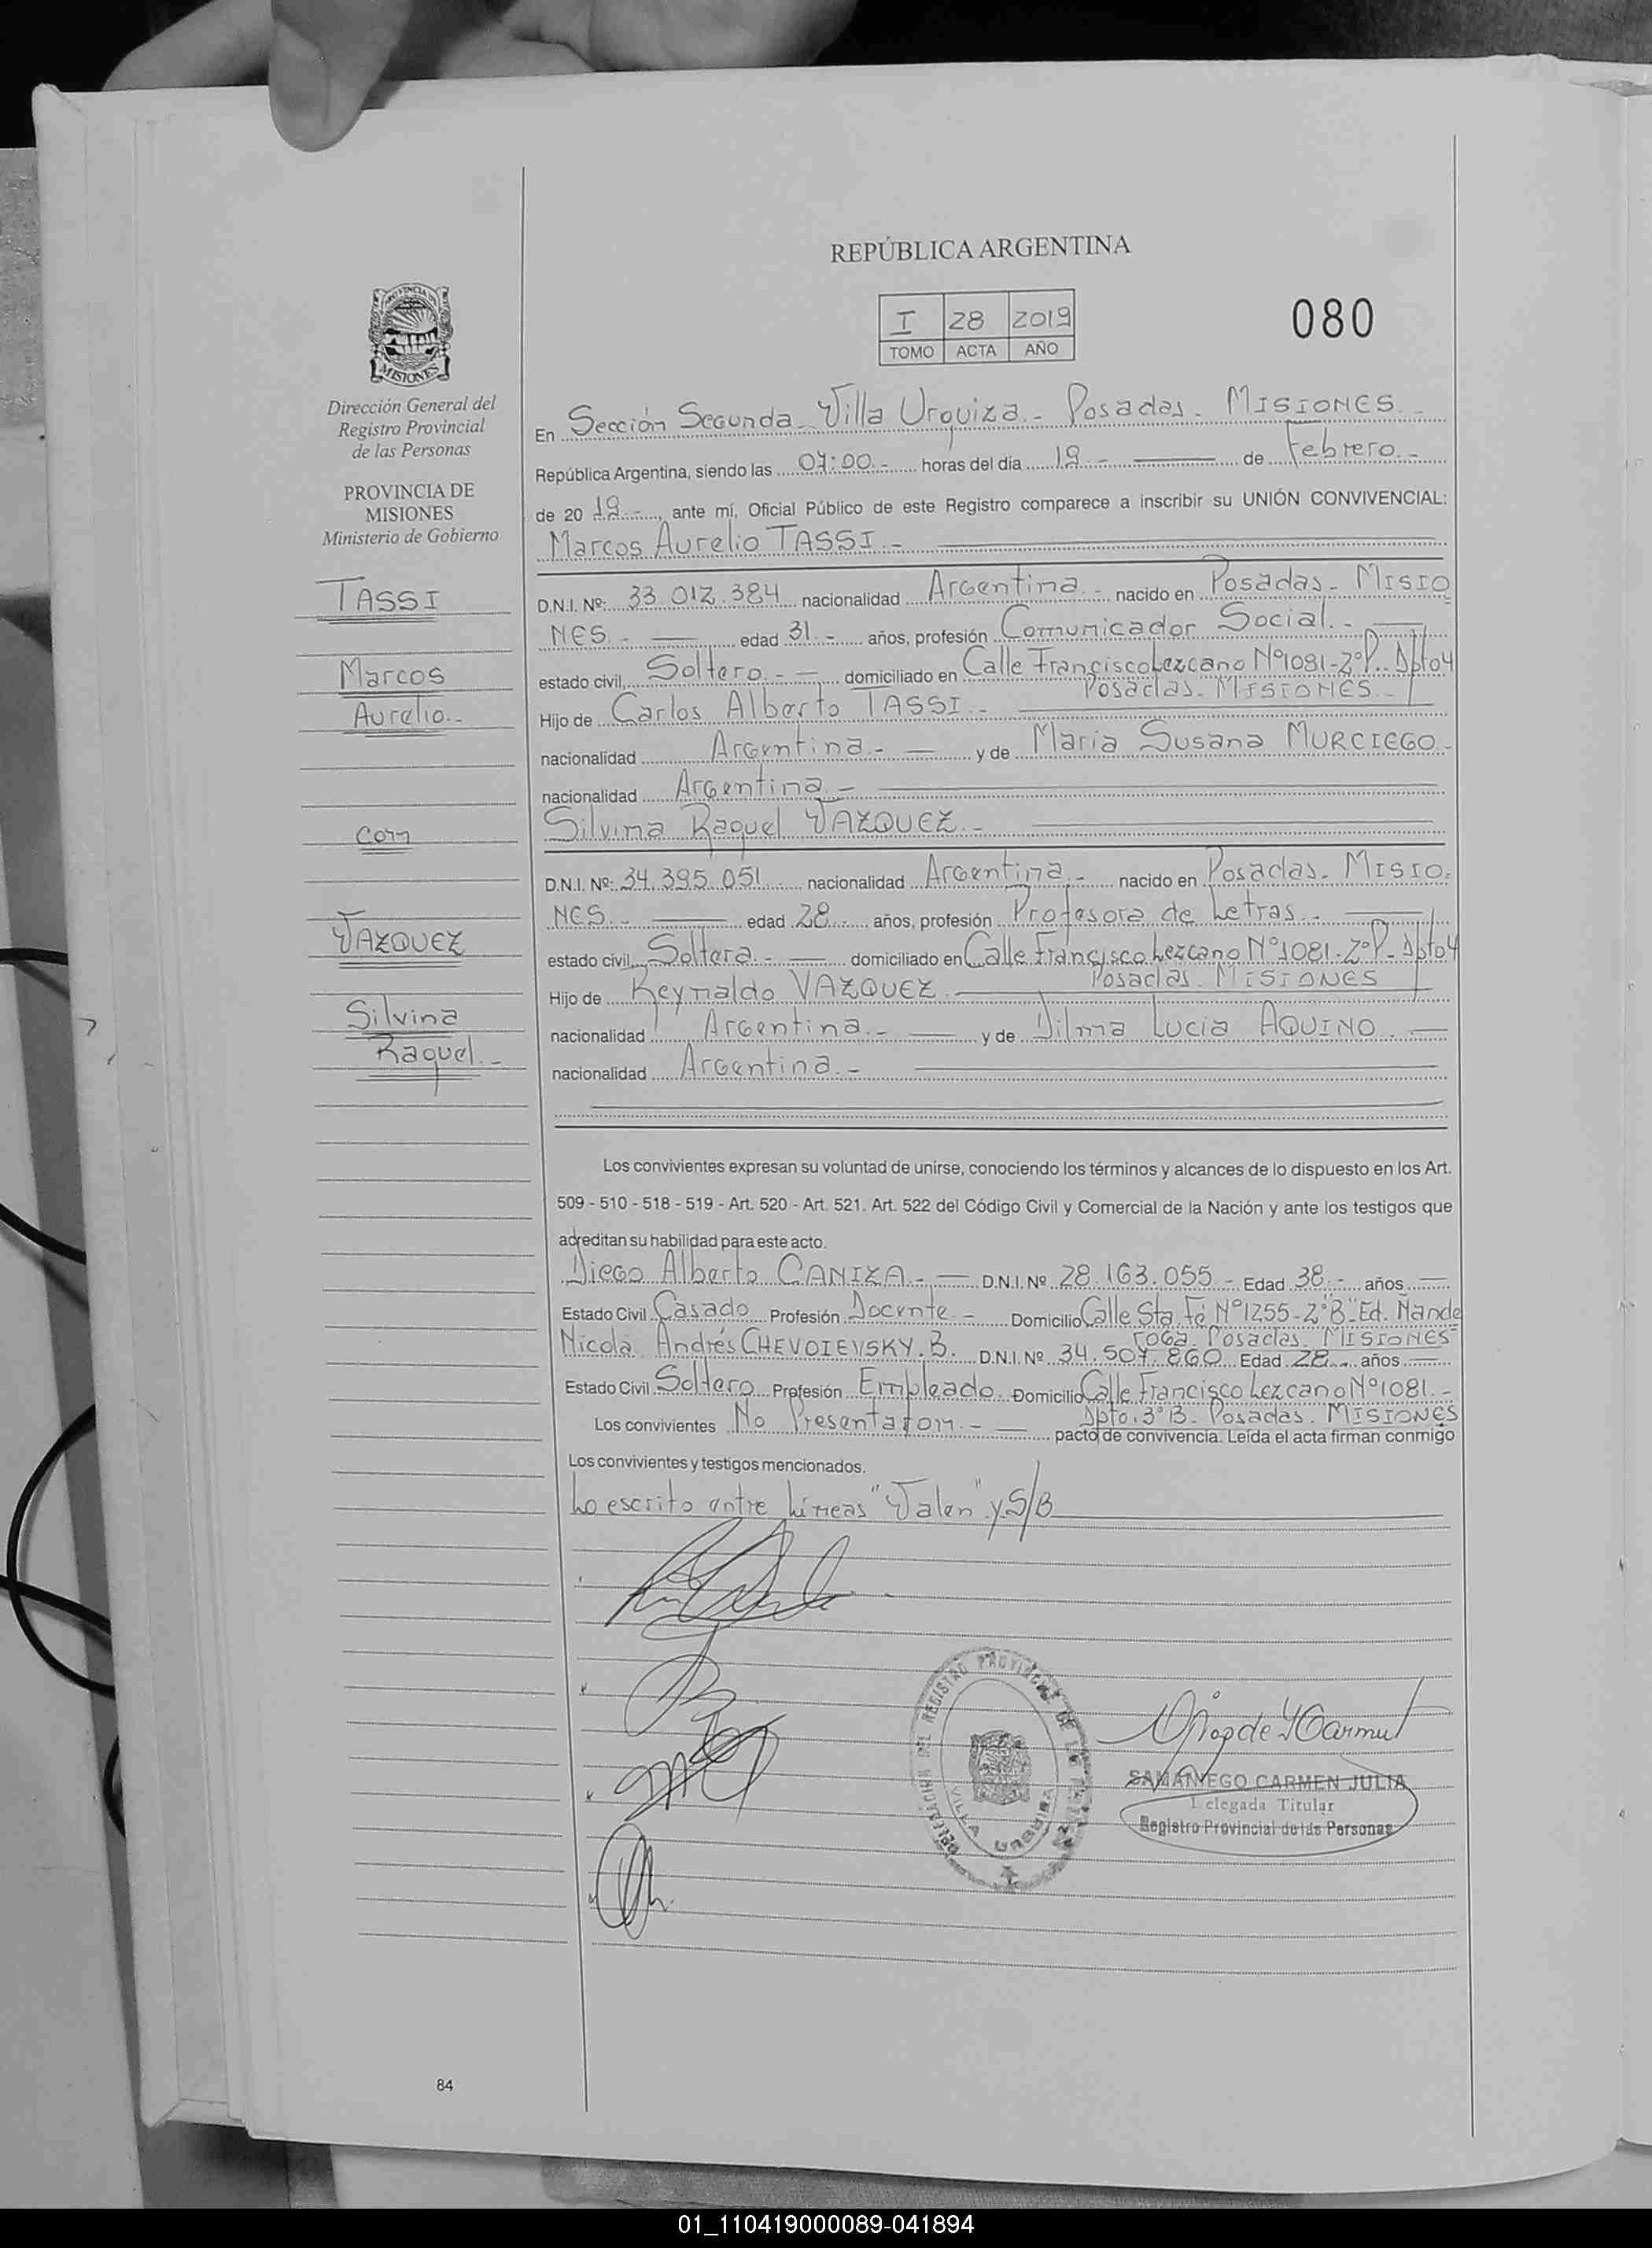 REPÚBLICA ARGENTINA
I 28 2019
TOMO ACTA AÑO
080
PROVINCIA DE
MISIONES
Dirección General del
Registro Provincial
de las Personas
PROVINCIA DE
MISIONES
Ministerio de Gobierno
TASSI
Marcos
Aurelio.-
Con
VAZQUEZ
Silvina
Raquel.-
En Sección Segunda - Villa Urquiza.- Posadas - MISIONES.-
República Argentina, siendo las 07:00.- horas del día 19.- de Febrero.-
de 20 19.-, ante mí, Oficial Público de este Registro comparece a inscribir su UNIÓN CONVIVENCIAL:
Marcos Aurelio TASSI.-
D.N.I. Nº: 33.012.384 nacionalidad Argentina.- nacido en Posadas - MISIO
NES.- edad 31.- años, profesión Comunicador Social.-
estado civil, Soltero.- domiciliado en Calle Francisco Lezcano Nº1081-2ºP. Dpto4
Posadas - MISIONES.-
Hijo de Carlos Alberto TASSI.-
nacionalidad Argentina.- y de Maria Susana MURCIEGO.-
nacionalidad Argentina.-
Silvina Raquel VAZQUEZ.-
D.N.I. Nº: 34.395.051 nacionalidad Argentina.- nacido en Posadas - MISIO.
NES.- edad 28 años, profesión Profesora de Letras.-
estado civil, Soltera.- domiciliado en Calle Francisco Lezcano Nº1081-2ºP- Dpto4
Posadas MISIONES
Hijo de Reynaldo VAZQUEZ.
nacionalidad Argentina.- y de Dilma Lucia AQUINO.
nacionalidad Argentina.-
Los convivientes expresan su voluntad de unirse, conociendo los términos y alcances de lo dispuesto en los Art.
509 - 510 - 518 - 519 - Art. 520 - Art. 521. Art. 522 del Código Civil y Comercial de la Nación y ante los testigos que
acreditan su habilidad para este acto.
Diego Alberto CANIZA.- D.N.I. Nº 28.163.055 - Edad 38.- años
Estado Civil Casado Profesión Docente.- Domicilio Calle Sta. Fé Nº1255-2ºB"Ed. Mande
Posadas. MISIONES
Nicola Andrés CHEVOIEVSKY.B. D.N.I. Nº 34.507.860 Edad 28 años
Estado Civil Soltero Profesión Empleado. Domicilio Calle Francisco Lezcano Nº1081.-
Dpto.3ºB. Posadas. MISIONES
Los convivientes No Presentaron.- pacto de convivencia. Leída el acta firman conmigo
Los convivientes y testigos mencionados.
Lo escrito entre Líneas "Valen" y S/B
DELEGACION DEL REGISTRO PROVINCIAL DE LAS PERSONAS
VILLA URQUIZA
SAMANIEGO CARMEN JULIA
Delegada Titular
Registro Provincial de las Personas
84
01_110419000089-041894